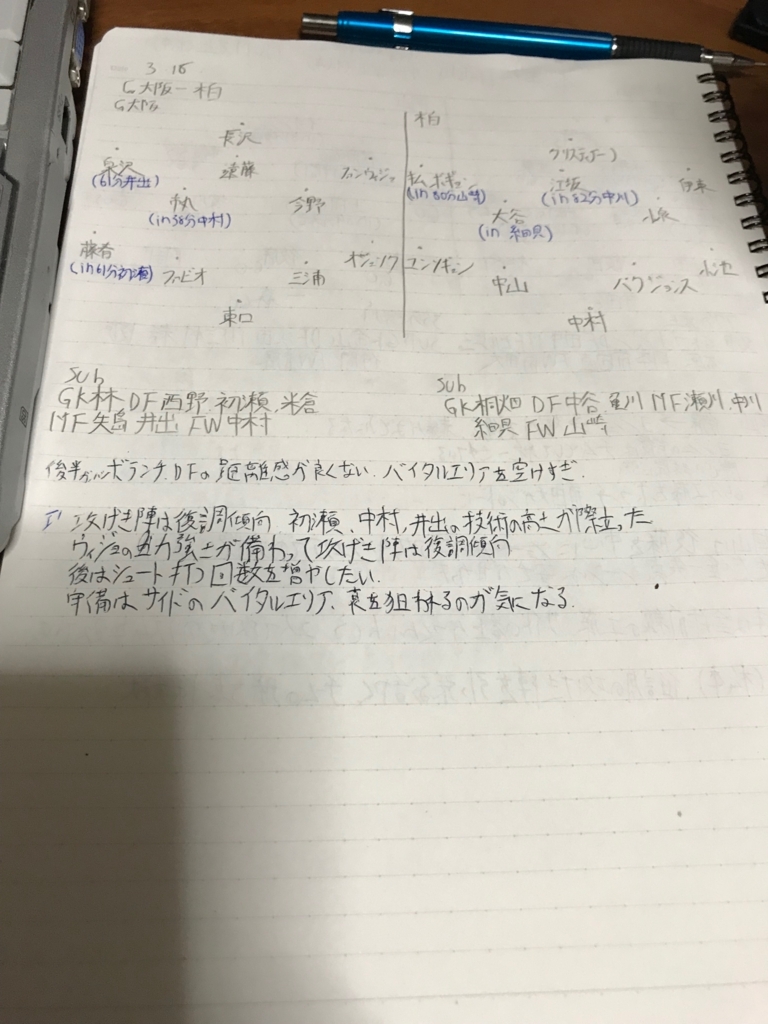 3 16
G大阪-柏
G大阪
長沢
泉沢 遠藤 ファンウィジョ
(61分井出)
今野
(in 58分中村)
藤春 ファビオ 三浦 オジェソク
(in 61分初瀬)
東口
柏
クリスティアーノ
キム ボギョン 江坂 伊東
(in 80分山崎) (in 82分中川)
大谷 小泉
(in 細貝)
ユンソギョン 中山 パクジョンス 小池
中村
sub
GK林 DF西野 初瀬 米倉
MF矢島 井出 FW中村
sub
GK桐畑 DF中谷 亀川 MF瀬川 中川
細貝 FW山崎
後半 ボランチ、DFの距離感が良くない。バイタルエリアを空けすぎ。
攻げき陣は復調傾向 初瀬、中村、井出の技術の高さが際立った
ウィジョの力強さが備わって攻げき陣は復調傾向
後はシュート打つ回数を増やしたい。
守備はサイドのバイタルエリア、裏を狙われるのが気になる。